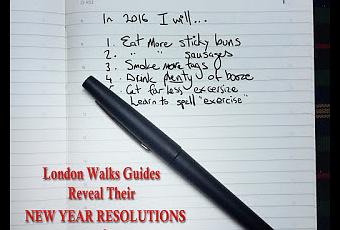 In 2016 I will...
1. Eat More sticky buns
2. " " sausages
3. Smoke more fags
4. Drink plenty of booze
5. Get far less excersize
Learn to spell "exercise"
London Walks Guides
Reveal Their
NEW YEAR RESOLUTIONS